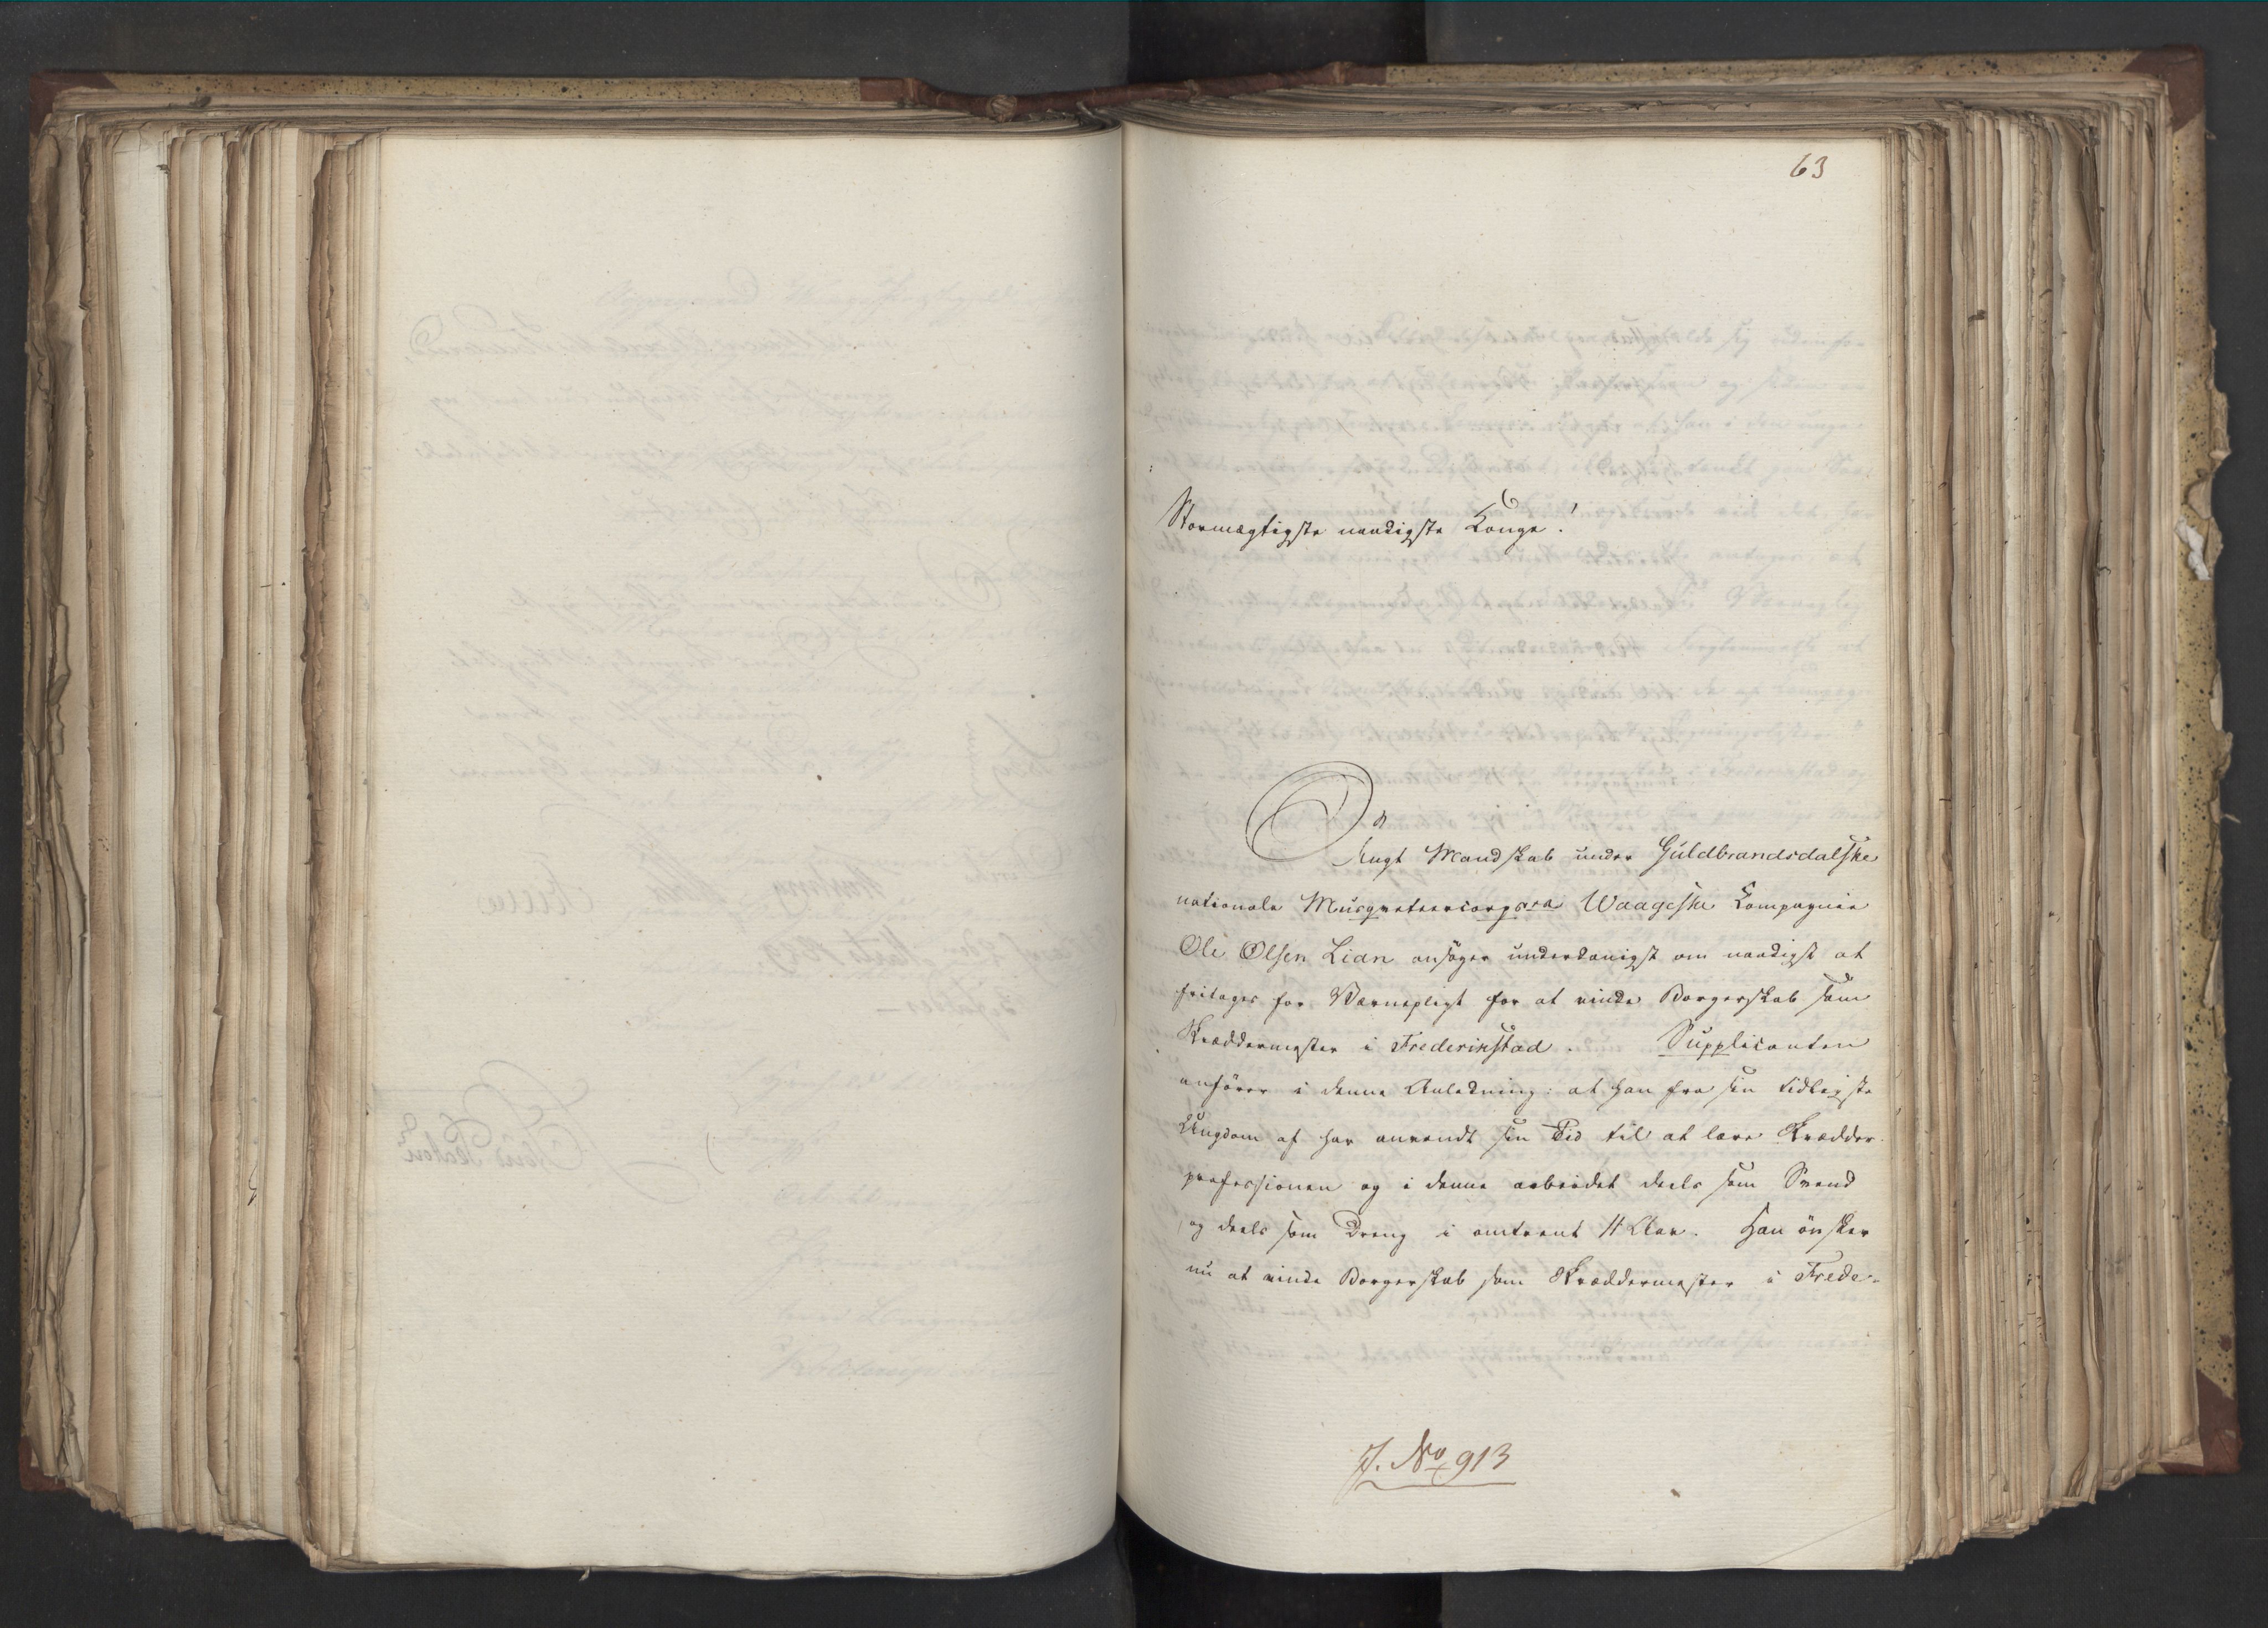 63
Stormægtigste naadigste Konge!
Da
Ungt Mandskab under Guldbrandsdalske
nationale Musqueteercorps Waageske Kompagnie
Ole Olsen Lian ansöger underdanigst om naadigst at
fritages for Værnepligt for at vinde Borgerskab som
Skræddermester i Frederikstad. Supplicanten
anförer i denne Anledning: at han fra sin tidligste
Ungdom af har anvendt sin Tid til at lære Skrædder-
professionen og i denne arbeidet deels som Svend
og deels som Dreng i omtrent 11 Aar. Han önsker
nu at vinde Borgerskab som Skræddermester i Frede-
J. No 913